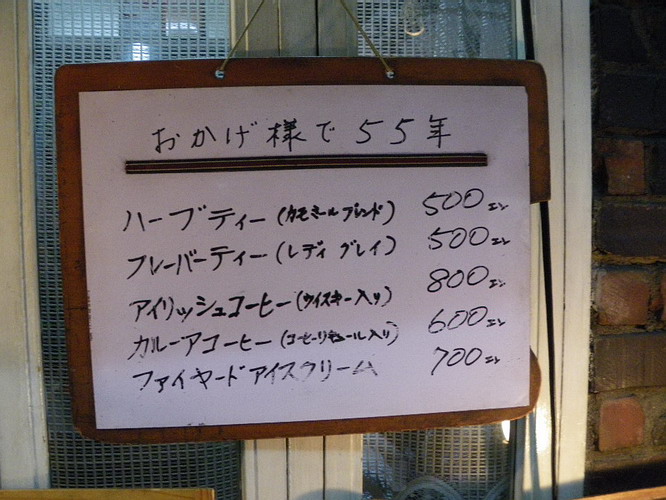 おかげ様で55年
ハーブティー(カモミールブレンド) 500エン
フレーバーティー(レディグレイ) 500エン
アイリッシュコーヒー(ウイスキー入り) 800エン
カルーアコーヒー(コーヒーリキュール入り) 600エン
ファイヤードアイスクリーム 700エン